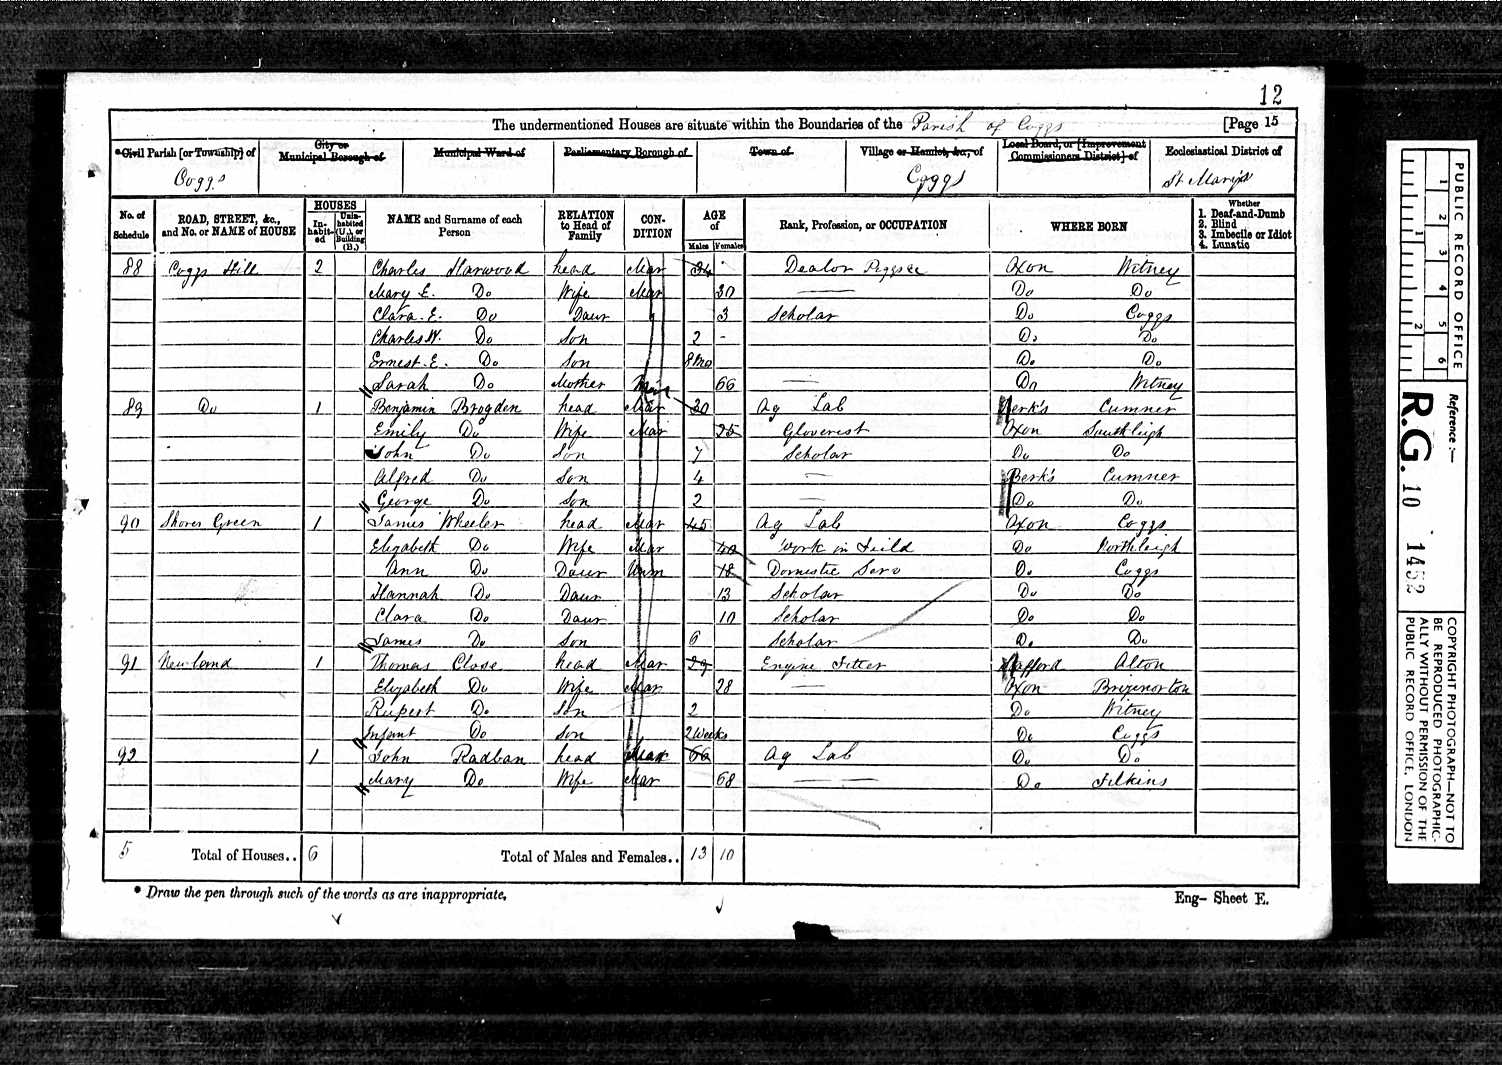 12
The undermentioned Houses are situate within the Boundaries of the Parish of Coggs [Page 15
*Civil Parish [or Township] of Coggs
City or Municipal Borough of
Municipal Ward of
Parliamentary Borough of
Town of
Village or Hamlet, &c., of Coggs
Local Board, or [Improvement Commissioners District] of
Ecclesiastical District of St Mary's
No. of Schedule
ROAD, STREET, &c., and No. or NAME of HOUSE
HOUSES
Inhabited
Uninhabited (U.), or Building (B.)
NAME and Surname of each Person
RELATION to Head of Family
CONDITION
AGE of
Males Females
Rank, Profession, or OCCUPATION
WHERE BORN
Whether
1. Deaf-and-Dumb
2. Blind
3. Imbecile or Idiot
4. Lunatic
88 Coggs Hill 2 Charles Harwood head Mar 34 - Dealer Oxon Witney
Mary E. Do Wife Mar 30 Do Do
Clara. E. Do Daur 3 Scholar Do Coggs
Charles W. Do Son 2 - Do Do
Ernest. E. Do Son 8 Mo Do Do
Sarah Do Mother 66 Do Witney
89 Do 1 Benjamin Brogden head Mar 30 Ag Lab Berk's Cumner
Emily Do Wife Mar 25 Gloverest Oxon Southleigh
John Do Son 7 Scholar Do Do
Alfred Do Son 4 Berk's Cumner
George Do Son 2 Do Do
90 Shores Green 1 James Wheeler head Mar 45 Ag Lab Oxon Coggs
Elizabeth Do Wife Mar 40 Work in Field Do Northleigh
Ann Do Daur Unm 18 Domestic Serv Do Coggs
Hannah Do Daur 13 Scholar Do Do
Clara Do Daur 10 Scholar Do Do
James Do Son 6 Scholar Do Do
91 Newland 1 Thomas Close head Mar 29 Engine Fitter Stafford Alton
Elizabeth Do Wife Mar 28 Oxon Brizenorton
Rupert Do Son 2 Do Witney
Infant Do Son 2 Weeks Do Coggs
92 1 John Radban head Mar 66 Ag Lab Do Do
Mary Do Wife Mar 68 Do Filkins
5 Total of Houses.. 6 Total of Males and Females.. 13 10
* Draw the pen through such of the words as are inappropriate.
Eng- Sheet E.
PUBLIC RECORD OFFICE
1 2 3 4 5 6
1 2
Reference :-
R.G. 10 1452
COPYRIGHT PHOTOGRAPH—NOT TO
BE REPRODUCED PHOTOGRAPHIC-
ALLY WITHOUT PERMISSION OF THE
PUBLIC RECORD OFFICE, LONDON